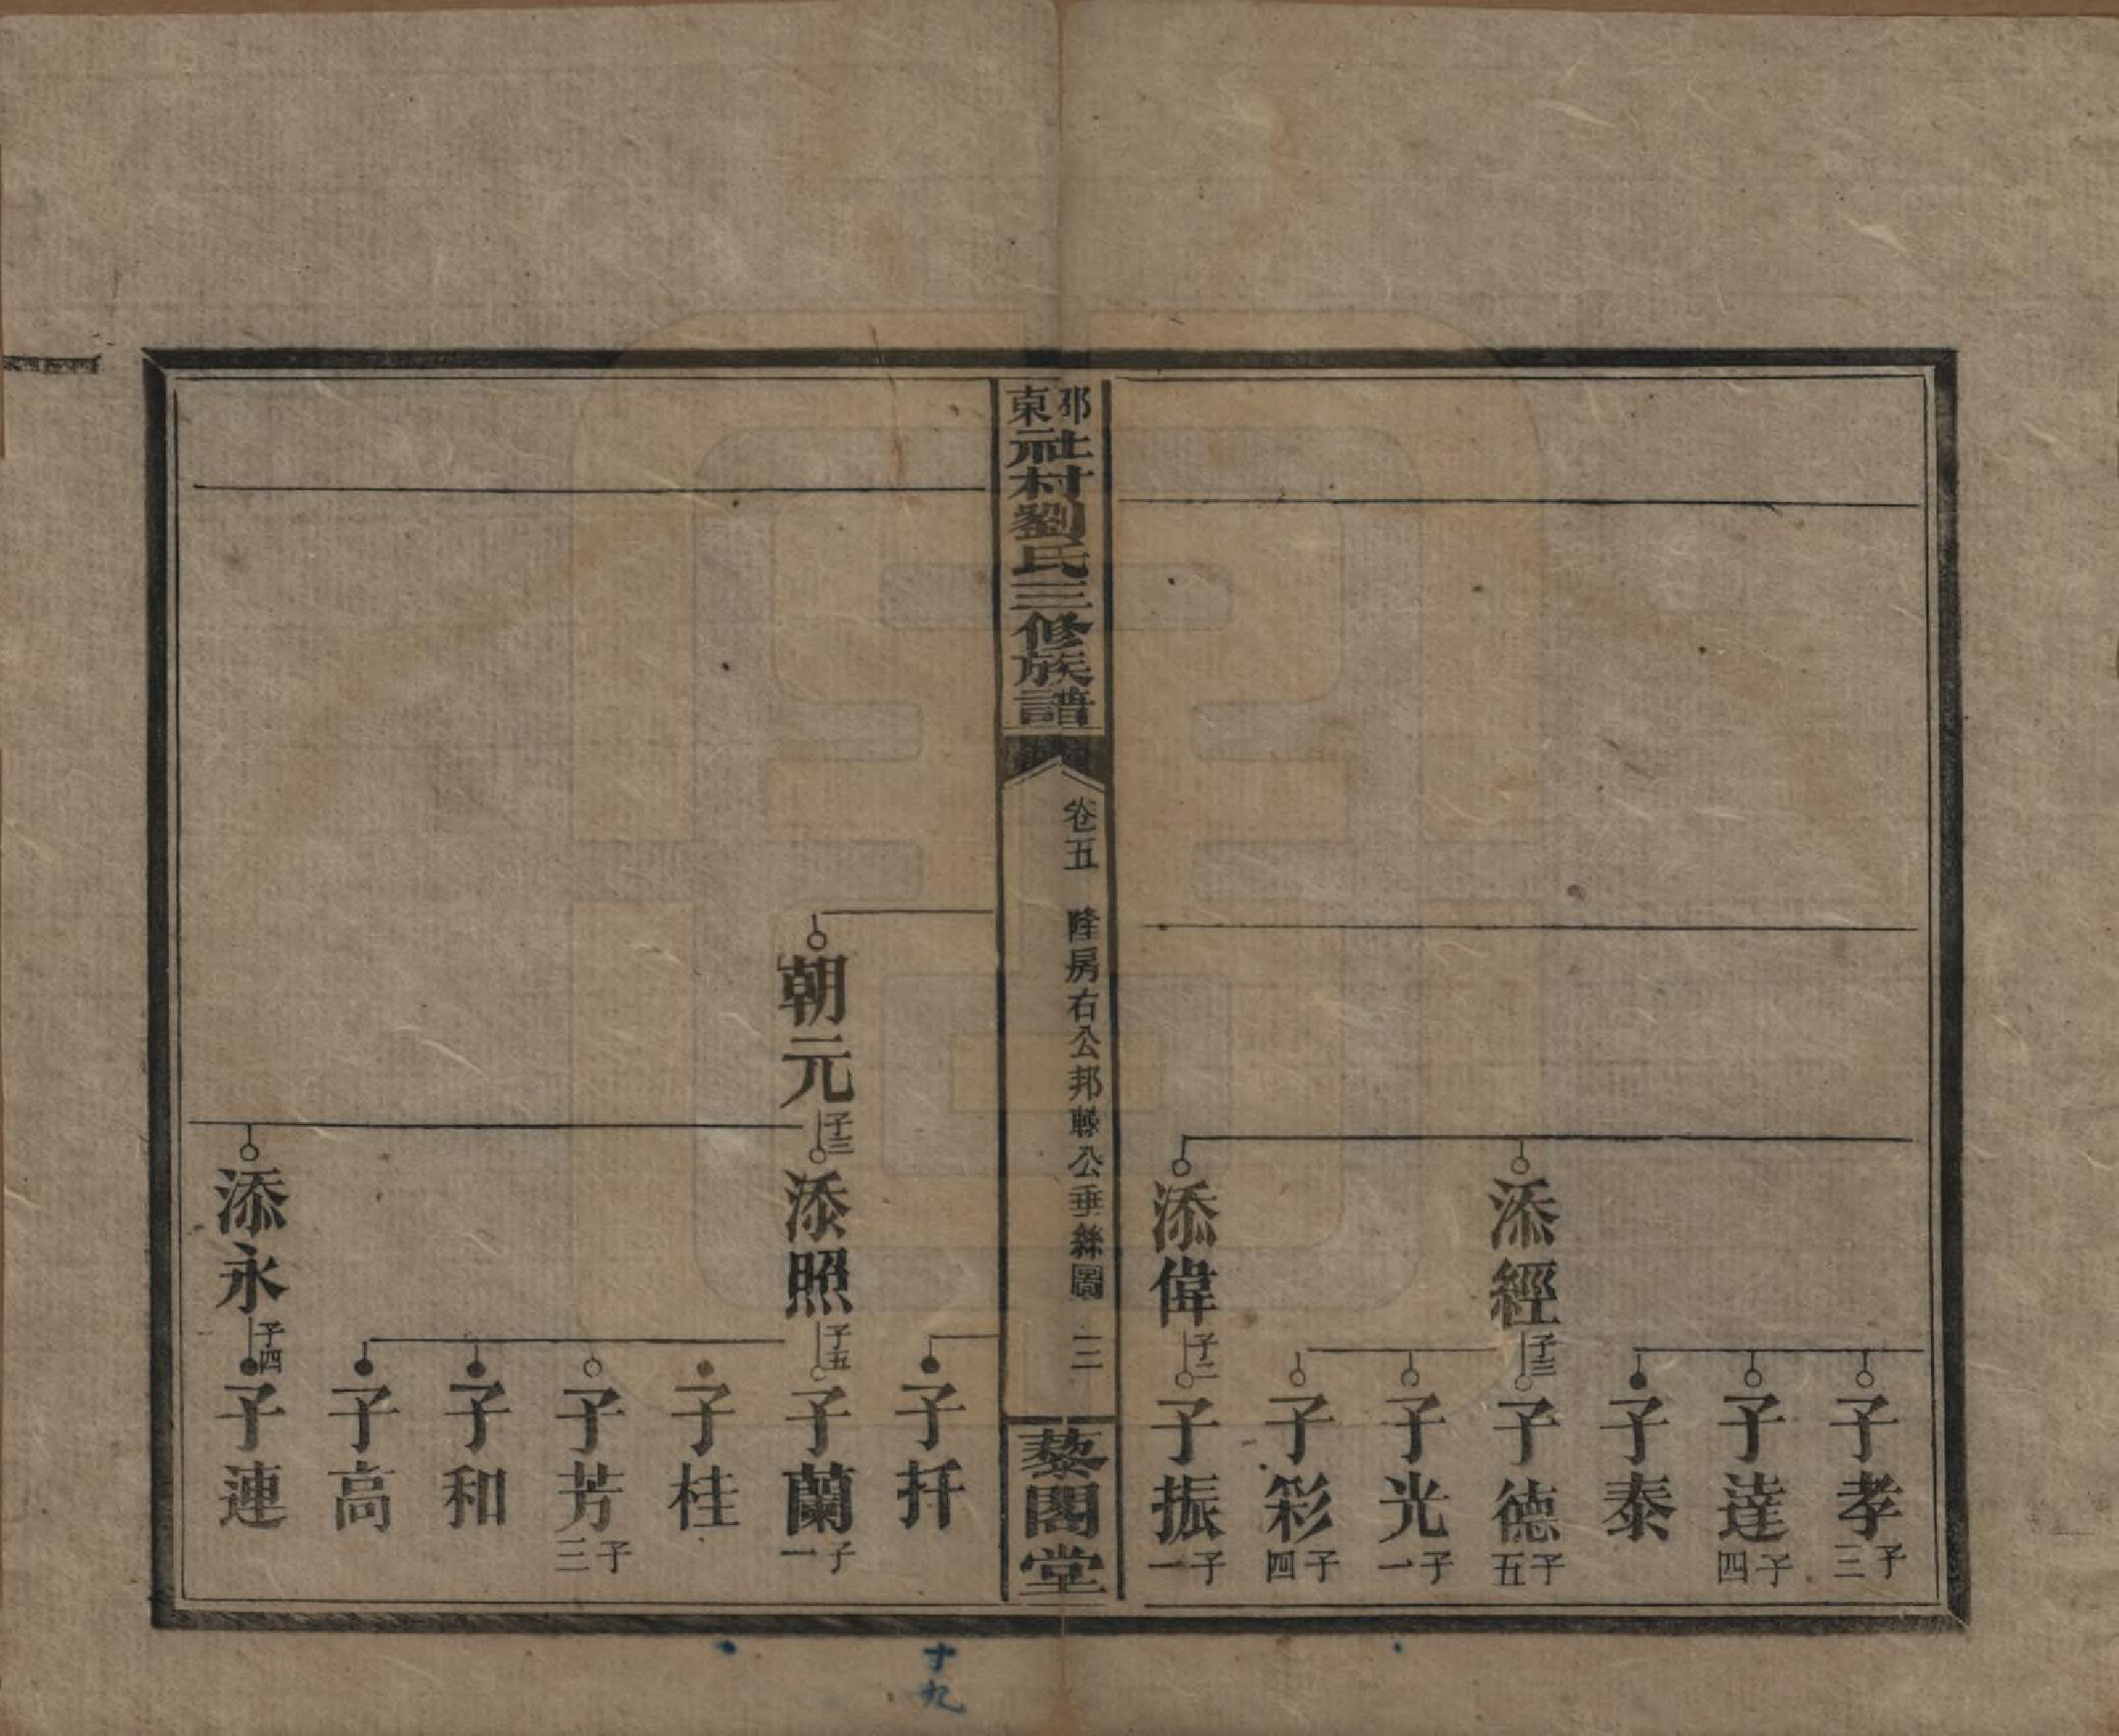 子孝 子三
子達 子四
子泰
添經 子三
子德 子五
子光 子一
子彩 子四
添偉 子二
子振 子一
邵東社村劉氏三修族譜
卷五 隆房右公邦聯公垂絲圖 三
藜閣堂
子扦
朝元 子三
添照 子五
子蘭 子一
子桂
子芳 子三
子和
子高
添永 子四
子連
十九